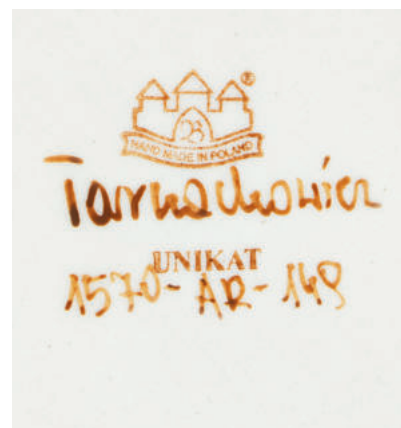 ®
HAND MADE IN POLAND
Tarnachowicz
UNIKAT
1570-AR-149